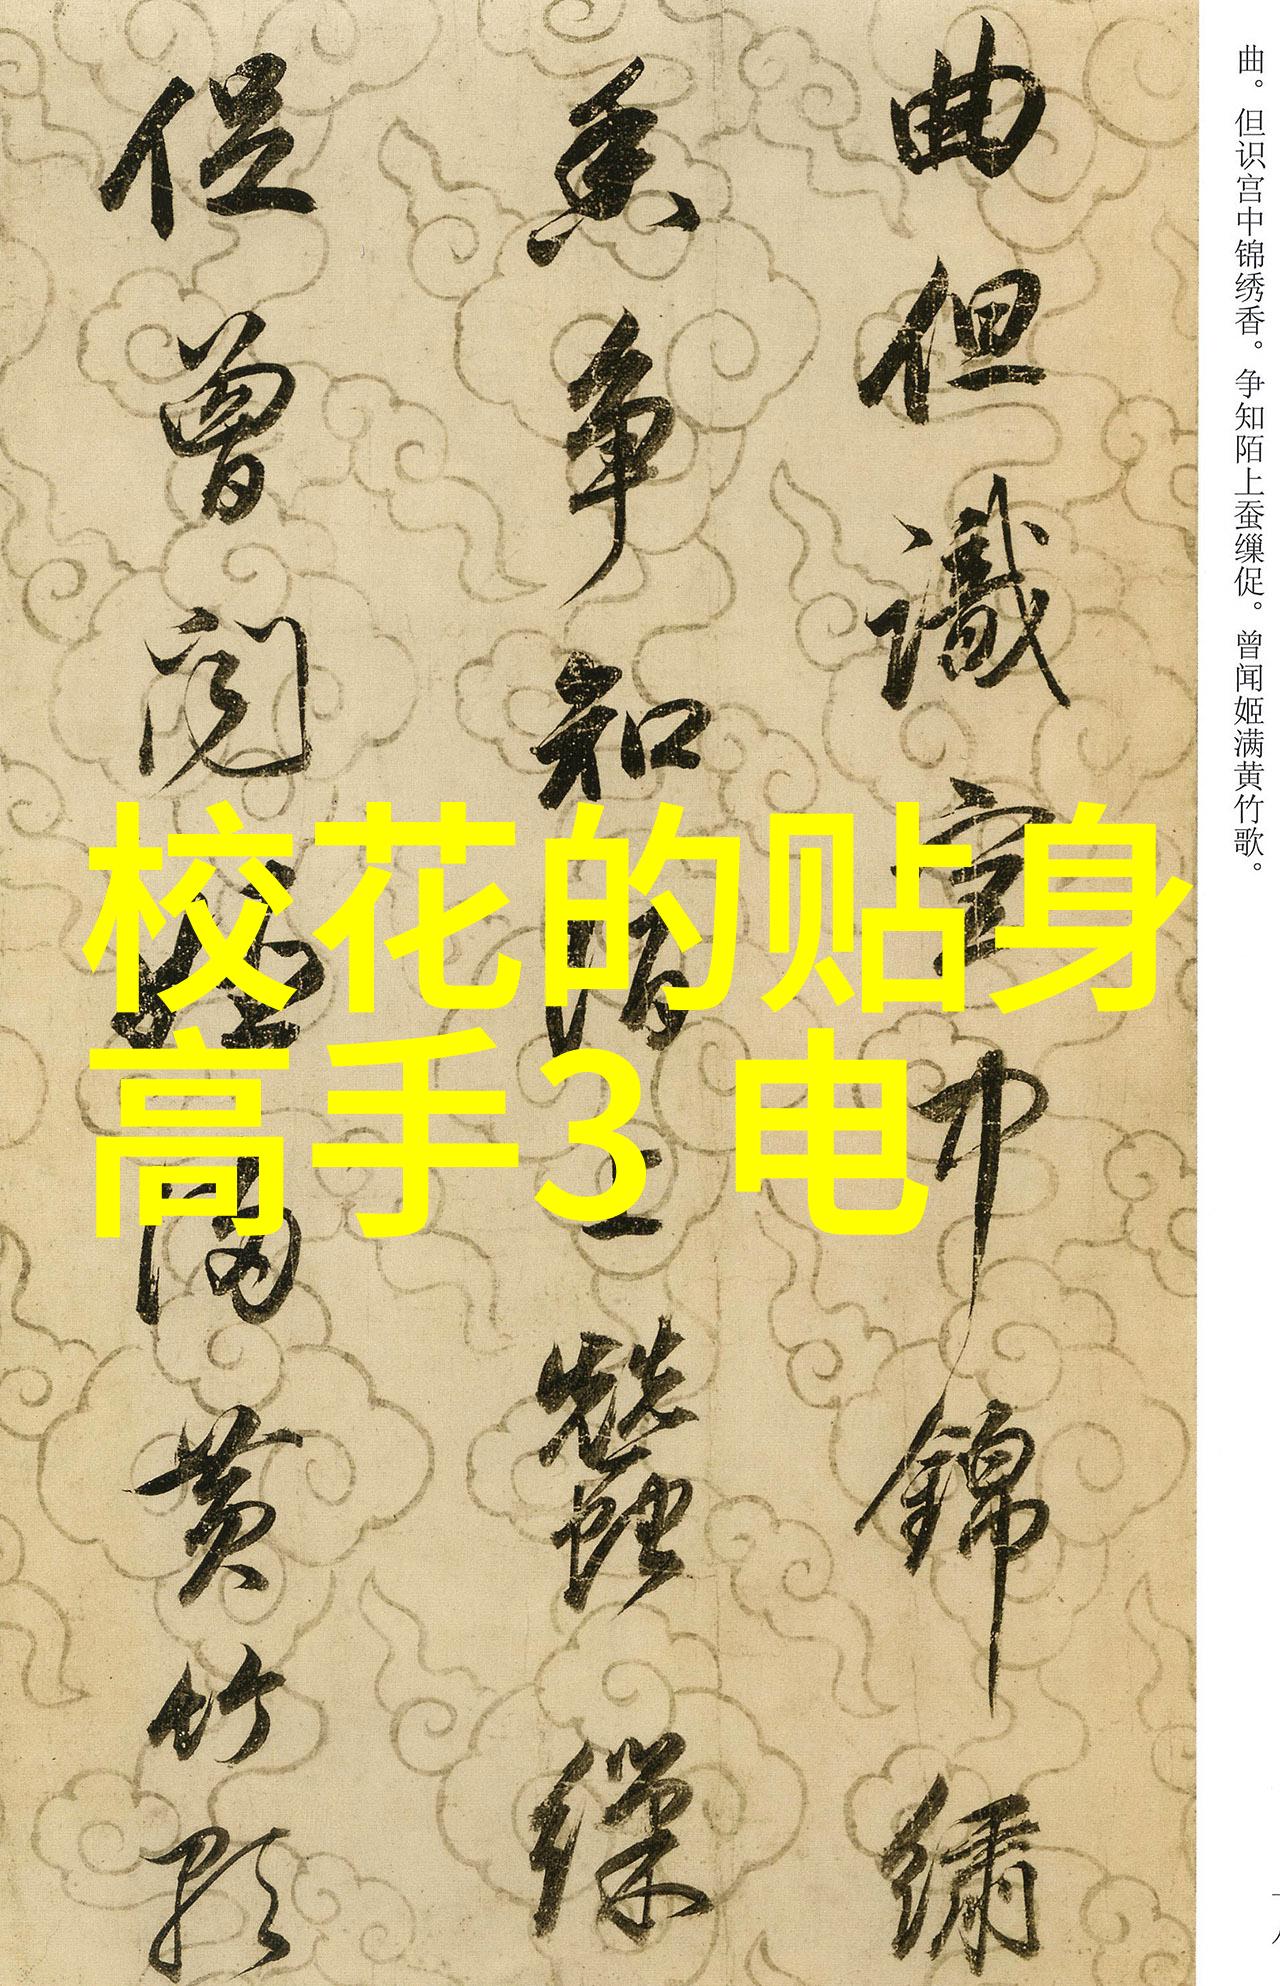 曲。但识宫中锦绣香。争知陌上蚕缫促。曾闻姬满黄竹歌。
曲但識宫中錦繡
香争知陌上蠶繅
促曾闻姬满黄竹歌
校花的贴身
高手3 电